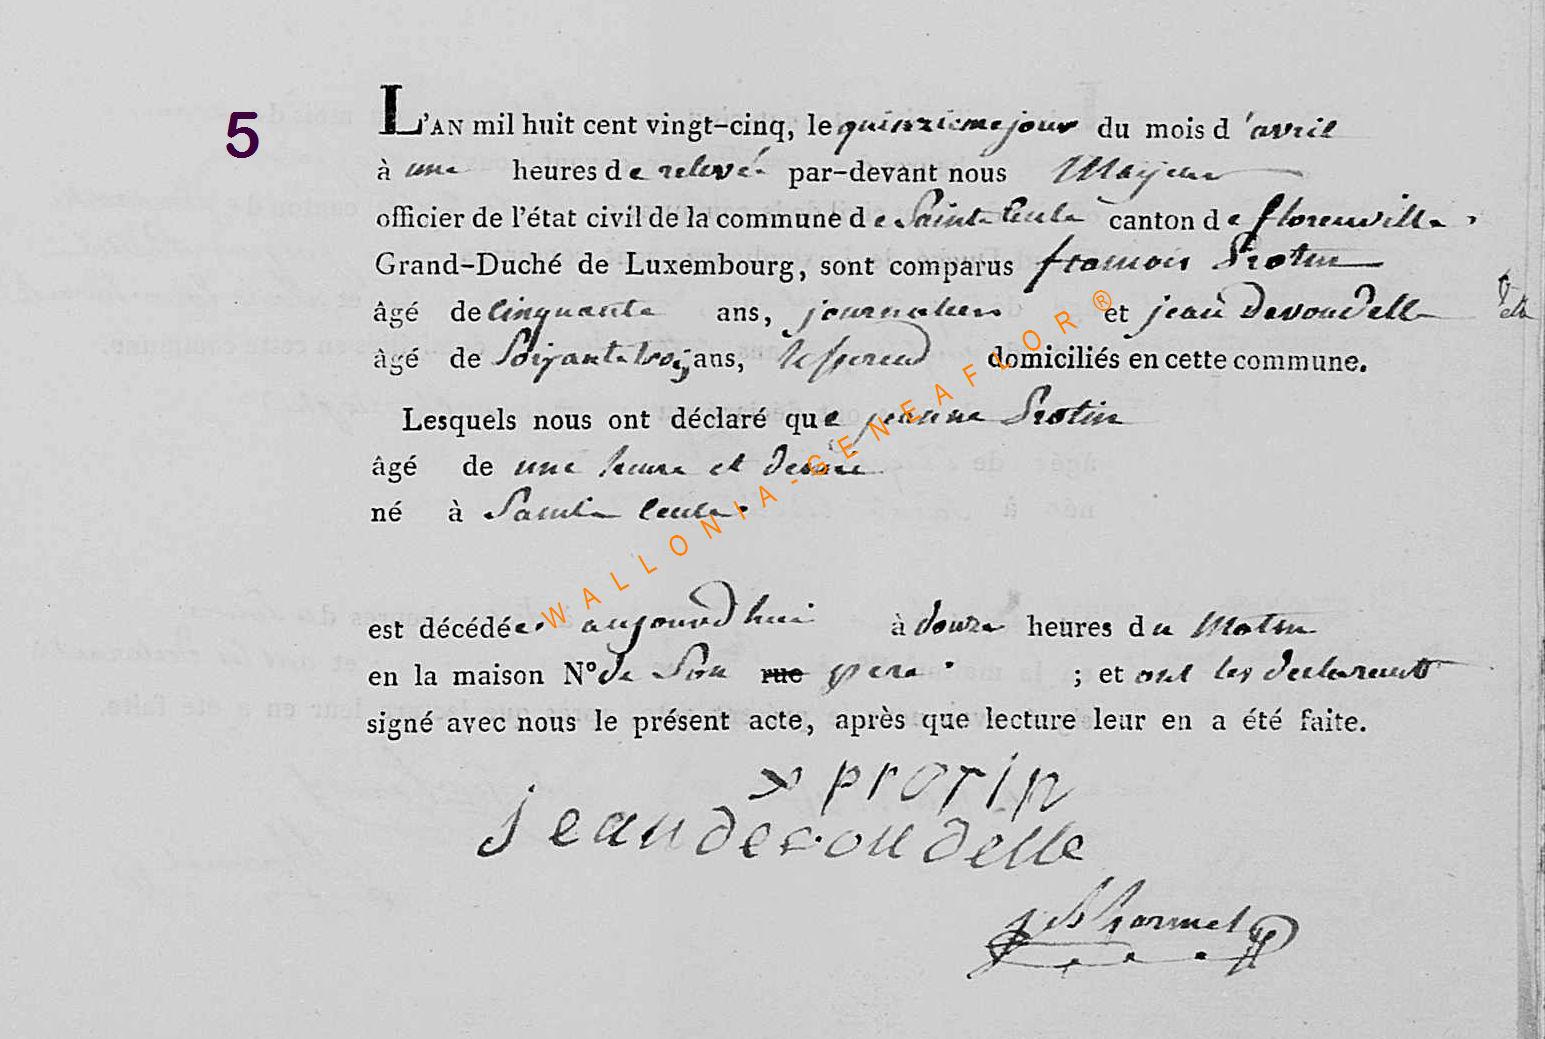 5
L'AN mil huit cent vingt-cinq, le quinzieme jour du mois d'avril
à une heures de relevé par-devant nous Mayeur
officier de l'état civil de la commune de Sainte Cecile canton de florenville.
Grand-Duché de Luxembourg, sont comparus francois Protin
âgé de cinquante ans, journalier et jean Devoudelle
âgé de Soixante trois ans, domiciliés en cette commune.
Lesquels nous ont déclaré que jeanne Protin
âgé de une heure et demie
né à Sainte Cecile.
est décédée aujourd'hui à douze heures du Matin
en la maison N° de Son rue pere. ; et ont les declarants
signé avec nous le présent acte, après que lecture leur en a été faite.
protin
jean devoudelle
WALLONIA-GENEAFLOR®